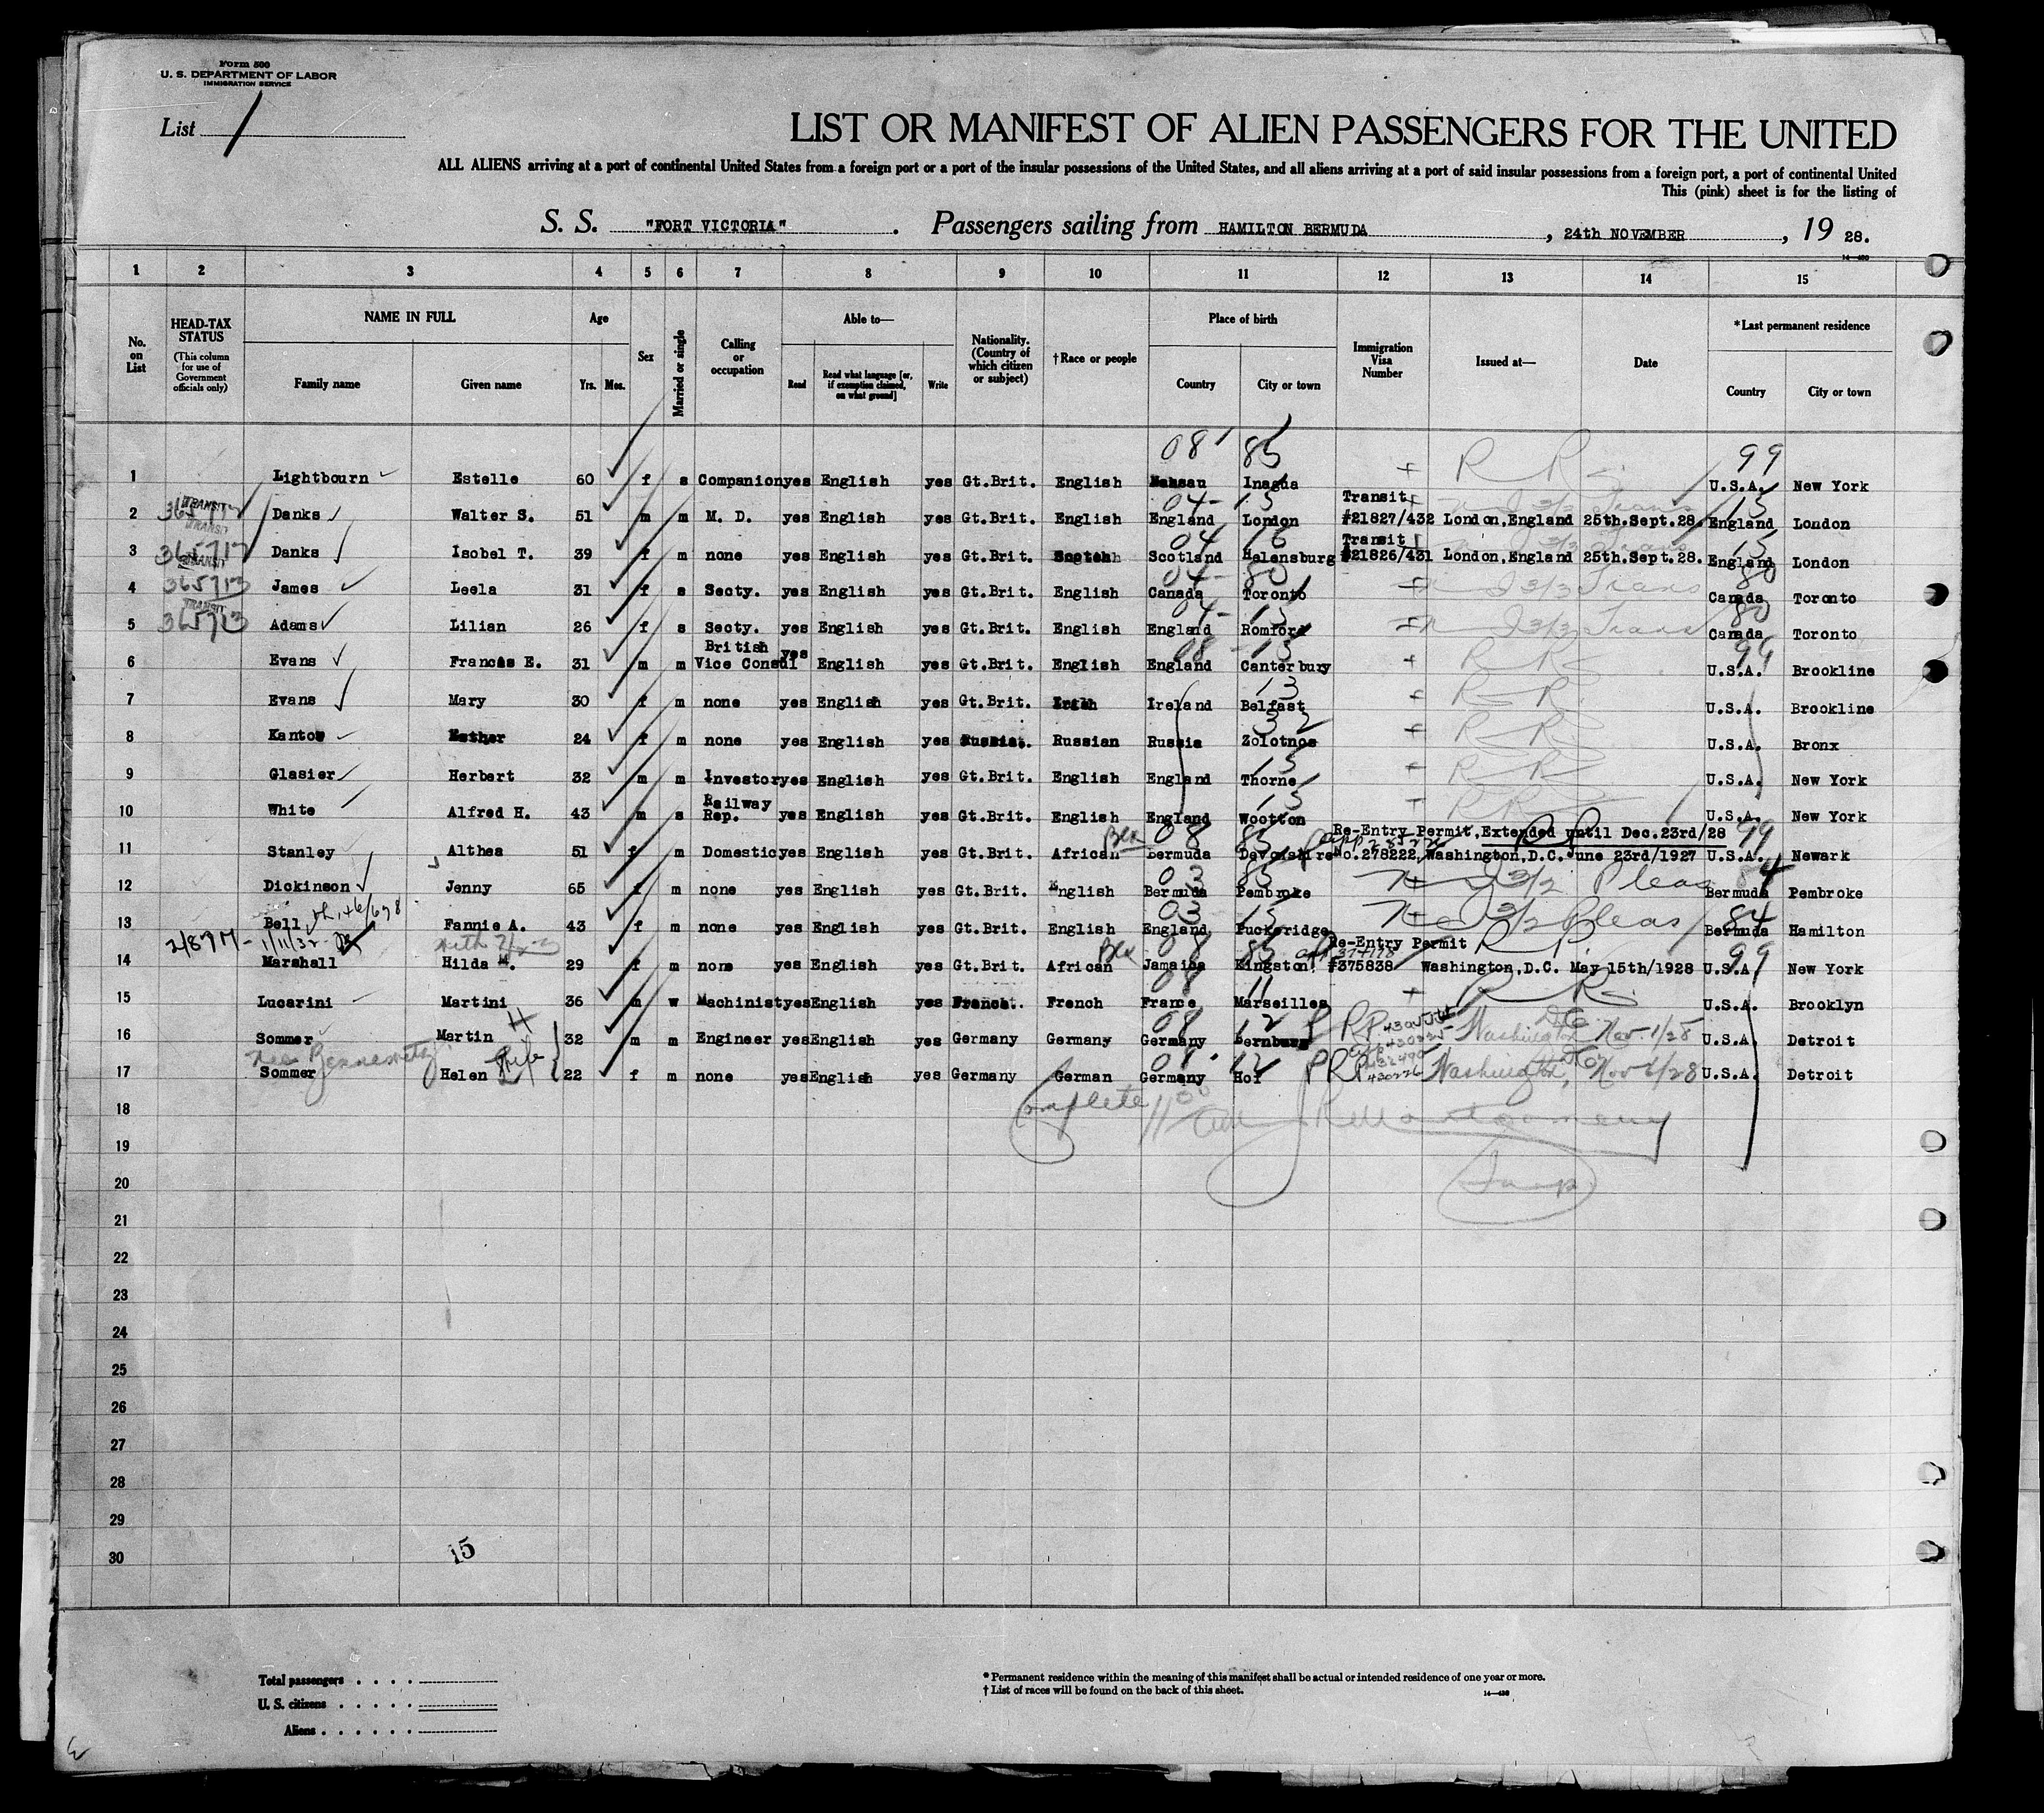 Form 500
U. S. DEPARTMENT OF LABOR
IMMIGRATION SERVICE
List 1
LIST OR MANIFEST OF ALIEN PASSENGERS FOR THE UNITED
ALL ALIENS arriving at a port of continental United States from a foreign port or a port of the insular possessions of the United States, and all aliens arriving at a port of said insular possessions from a foreign port, a port of continental United
This (pink) sheet is for the listing of
S. S. "FORT VICTORIA" . Passengers sailing from HAMILTON BERMUDA , 24th NOVEMBER , 19 28.
1 2 3 4 5 6 7 8 9 10 11 12 13 14 15
No. on List
HEAD-TAX STATUS (This column for use of Government officials only)
NAME IN FULL Family name Given name
Age Yrs. Mos.
Sex
Married or single
Calling or occupation
Able to— Read Read what language [or, if exemption claimed, on what ground] Write
Nationality. (Country of which citizen or subject)
†Race or people
Place of birth Country City or town
Immigration Visa Number
Issued at—
Date
*Last permanent residence Country City or town
08 85 R R 99
1 Lightbourn Estelle 60 f s Companion yes English yes Gt.Brit. English Nassau Inagua U.S.A. New York
TRANSIT 04- 13 Transit 13
2 Danks Walter S. 51 m m M. D. yes English yes Gt.Brit. English England London #21827/432 London,England 25th.Sept.28. England London
TRANSIT 04 16 Transit 13
3 Danks Isobel T. 39 f m none yes English yes Gt.Brit. Scotch Scotland Helensburg #21826/431 London,England 25th.Sept.28. England London
TRANSIT 04- 80 80
4 365713 James Leela 31 f s Secty. yes English yes Gt.Brit. English Canada Toronto Trans Canada Toronto
TRANSIT 04- 13 80
5 365713 Adams Lilian 26 f s Secty. yes English yes Gt.Brit. English England Romford Trans Canada Toronto
08 13 99
6 Evans Francis E. 31 m m British Vice Consul yes English yes Gt.Brit. English England Canterbury R R U.S.A. Brookline
13
7 Evans Mary 30 f m none yes English yes Gt.Brit. Irish Ireland Belfast R R U.S.A. Brookline
32
8 Kantor Esther 24 f m none yes English yes Russian Russia Zolotnos R R U.S.A. Bronx
13
9 Glasier Herbert 32 m m Investor yes English yes Gt.Brit. English England Thorne R R U.S.A. New York
13
10 White Alfred H. 43 m s Railway Rep. yes English yes Gt.Brit. English England Wootton R R U.S.A. New York
Blk 08 85 Re-Entry Permit,Extended until Dec.23rd/28 99
11 Stanley Althea 51 f m Domestic yes English yes Gt.Brit. African Bermuda Devonshire No.278222,Washington,D.C. June 23rd/1927 U.S.A. Newark
03 85 3/2 Pleas 84
12 Dickinson Jenny 65 f m none yes English yes Gt.Brit. English Bermuda Pembroke Bermuda Pembroke
03 13 3/2 Pleas 84
13 Bell Fannie A. 43 f m none yes English yes Gt.Brit. English England Puckeridge Bermuda Hamilton
1/11/32 Blk 08 85 Re-Entry Permit R R 99
14 Marshall Hilda M. 29 f m none yes English yes Gt.Brit. African Jamaica Kingston #375838 Washington,D.C. May 15th/1928 U.S.A. New York
08 11
15 Lucarini Martini 36 m w Machinist yes English yes French French France Marseilles R R U.S.A. Brooklyn
08 12
16 Sommer Martin 32 m m Engineer yes English yes Germany Germany Germany Bernburg RP Washington DC Nov. 1/28 U.S.A. Detroit
08 12
17 Sommer Helen 22 f m none yes English yes Germany German Germany Hof PRP 430226 Washington, DC Nov 1/28 U.S.A. Detroit
18 Complete 11 00 AM R Montgomery
19
20 Insp
21
22
23
24
25
26
27
28
29
30
15
Total passengers . . . .
U. S. citizens . . . . .
Aliens . . . . . .
* Permanent residence within the meaning of this manifest shall be actual or intended residence of one year or more.
† List of races will be found on the back of this sheet.
14—430